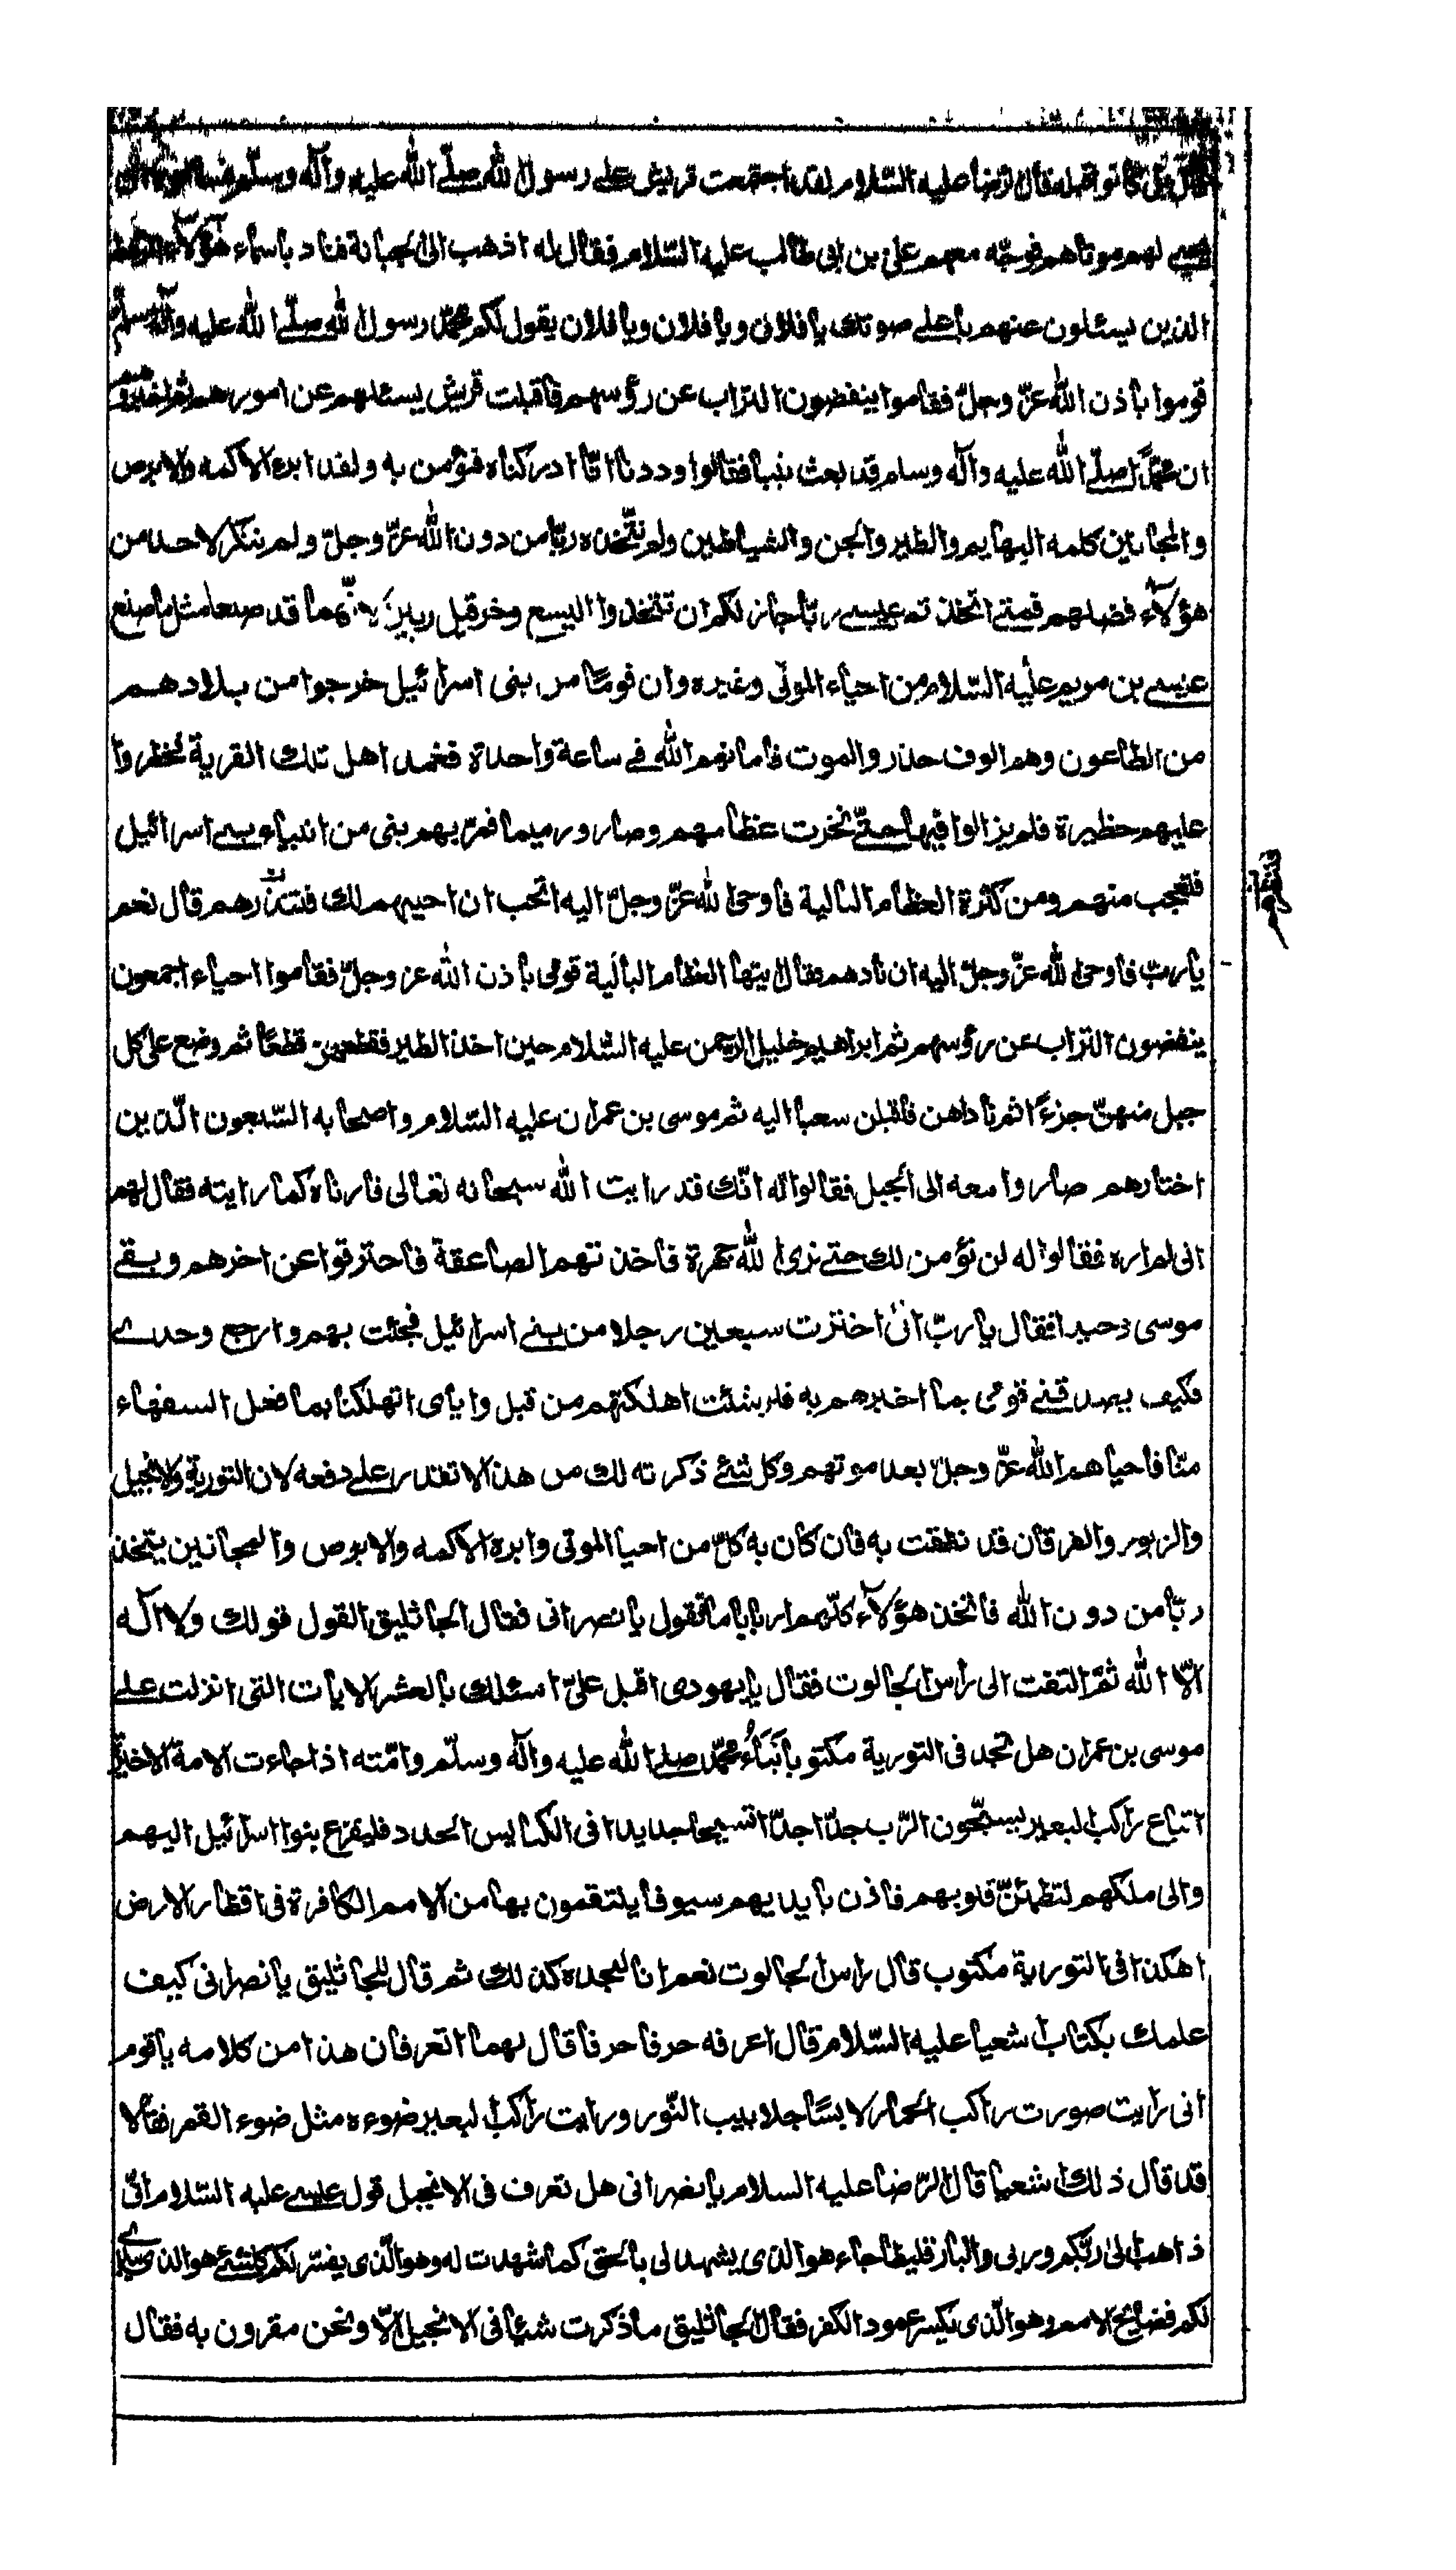 بل كانوا قبله قال الرضا عليه السّلام لقد اجتمعت قريش على رسول الله صلّے الله عليه وآله وسلّم
لهم موتاهم فوجّه معهم على بن ابى طالب عليه السّلام فقال له اذهب الى الجبانة فناد باسماء هؤلاء
الذين يسئلون عنهم باعلے صوتك يا فلان ويا فلان ويا فلان يقول لكم محمّد رسول الله صلّے الله عليه وآله وسلّم
قوموا باذن الله عزّ وجلّ فقاموا ينفضون التراب عن رؤسهم فاقبلت قريش يسئلهم عن امورهم ثم اخبروهم
ان محمّدًا صلّے الله عليه وآله وسلم قد بعث نبيا فقالوا وددنا انّا ادركناه فنؤمن به ولقد ابرء الاكمه والابرص
والمجانين كلمه البهايم والطير والجن والشياطين ولم نتّخذه ربّا من دون الله عزّ وجلّ ولم ننكر لاحد من
هؤلآء فضلهم فمتے اتخذتم عيسے ربّا جاز لكم ان تتخذوا اليسع وخرقيل ربين لانّهما قد صنعا مثل ما صنع
عيسے بن مريم عليه السّلام من احياء الموتى وغيره وان قومًا من بنى اسرائيل خرجوا من بلادهم
من الطاعون وهم الوف حذر والموت فاماتهم الله فے ساعة واحدة فعمد اهل تلك القرية فحظروا
عليهم حظيرة فلم يزالوا فيها حتّے نخرت عظامهم وصارو رميما فمرّ بهم نبى من انبياء بنے اسرائيل
فتعجب منهم ومن كثرة العظام البالية فاوحى الله عزّ وجلّ اليه اتحب ان احييهم لك فتنذرهم قال نعم
يا ربّ فاوحى الله عزّ وجلّ اليه ان نادهم فقال ايتها العظام البالية قومى باذن الله عز وجلّ فقاموا احياء اجمعون
ينفضون التراب عن رؤسهم ثم ابراهيم خليل الرحمن عليه السّلام حين اخذ الطير فقطعهن قطعًا ثم وضع على كل
جبل منهنّ جزءًا ثم ناداهن فاقبلن سعيا اليه ثم موسى بن عمران عليه السّلام واصحابه السّبعون الّذين
اختارهم صاروا معه الى الجبل فقالوا له انّك قد رايت الله سبحانه تعالى فارناه كما رايته فقال لهم
انى لم اره فقالوا له لن نؤمن لك حتے نرى الله جهرة فاخذتهم الصاعقة فاحترقوا عن اخرهم وبقے
موسى وحيدا فقال يا ربّ انى اخترت سبعين رجلا من بنے اسرائيل فجئت بهم وارجع وحدے
فكيف يصدقنے قومى بما اخبرهم به فلو شئت اهلكتهم من قبل واياى اتهلكنا بما فعل السفهاء
منّا فاحياهم الله عزّ وجلّ بعد موتهم وكل شئے ذكرته لك من هذا لا تقدر علے دفعه لان التورية والانجيل
والزبور والفرقان قد نطقت به فان كان به كلّ من احيا الموتى وابره الاكمه والابرص والمجانين يتخذ
ربّا من دون الله فاتخذ هؤلآء كلّهم اربابا ما تقول يا نصرانى فقال الجاثليق القول قولك ولا اله
الّا الله ثمّ التفت الى راس الجالوت فقال يا يهودى اقبل علىّ اسئلك بالعشر الايات التى انزلت علے
موسى بن عمران هل تجد فى التورية مكتوبا نبأ محمّد صلے الله عليه وآله وسلّم وامّته اذا جاءت الامة الاخيرة
اتباع راكب البعير يسبّحون الرّب جدّا جدّا تسبيحا جديدا فى الكنايس الجدد فليفزع بنوا اسرائيل اليهم
والى ملكهم لتطمئنّ قلوبهم فاذن بايديهم سيوفا ينتقمون بها من الامم الكافرة فى اقطار الارض
اهكذا فى التورية مكتوب قال راس الجالوت نعم انا لنجده كذلك ثم قال للجاثليق يا نصرانى كيف
علمك بكتاب شعيا عليه السّلام قال اعرفه حرفا حرفا قال لهما اتعرفان هذا من كلامه يا قوم
انى رايت صورت راكب الحمار لابسًا جلابيب النّور ورايت راكب البعير ضوءه مثل ضوء القمر فقالا
قد قال ذلك شعيا قال الرّضا عليه السلام يا نصرانى هل تعرف فى الانجيل قول عيسے عليه السّلام انّى
ذاهب الى ربّكم وربى والبارقليطا جاء هو الذى يشهد لى بالحق كما شهدت له وهو الّذى يفسّر لكم كلشئے هو الذى يبدے
لكم فضايح الامم وهو الّذى يكسر عمود الكفر فقال الجاثليق ما ذكرت شيئا فى الانجيل الّا ونحن مقرون به فقال